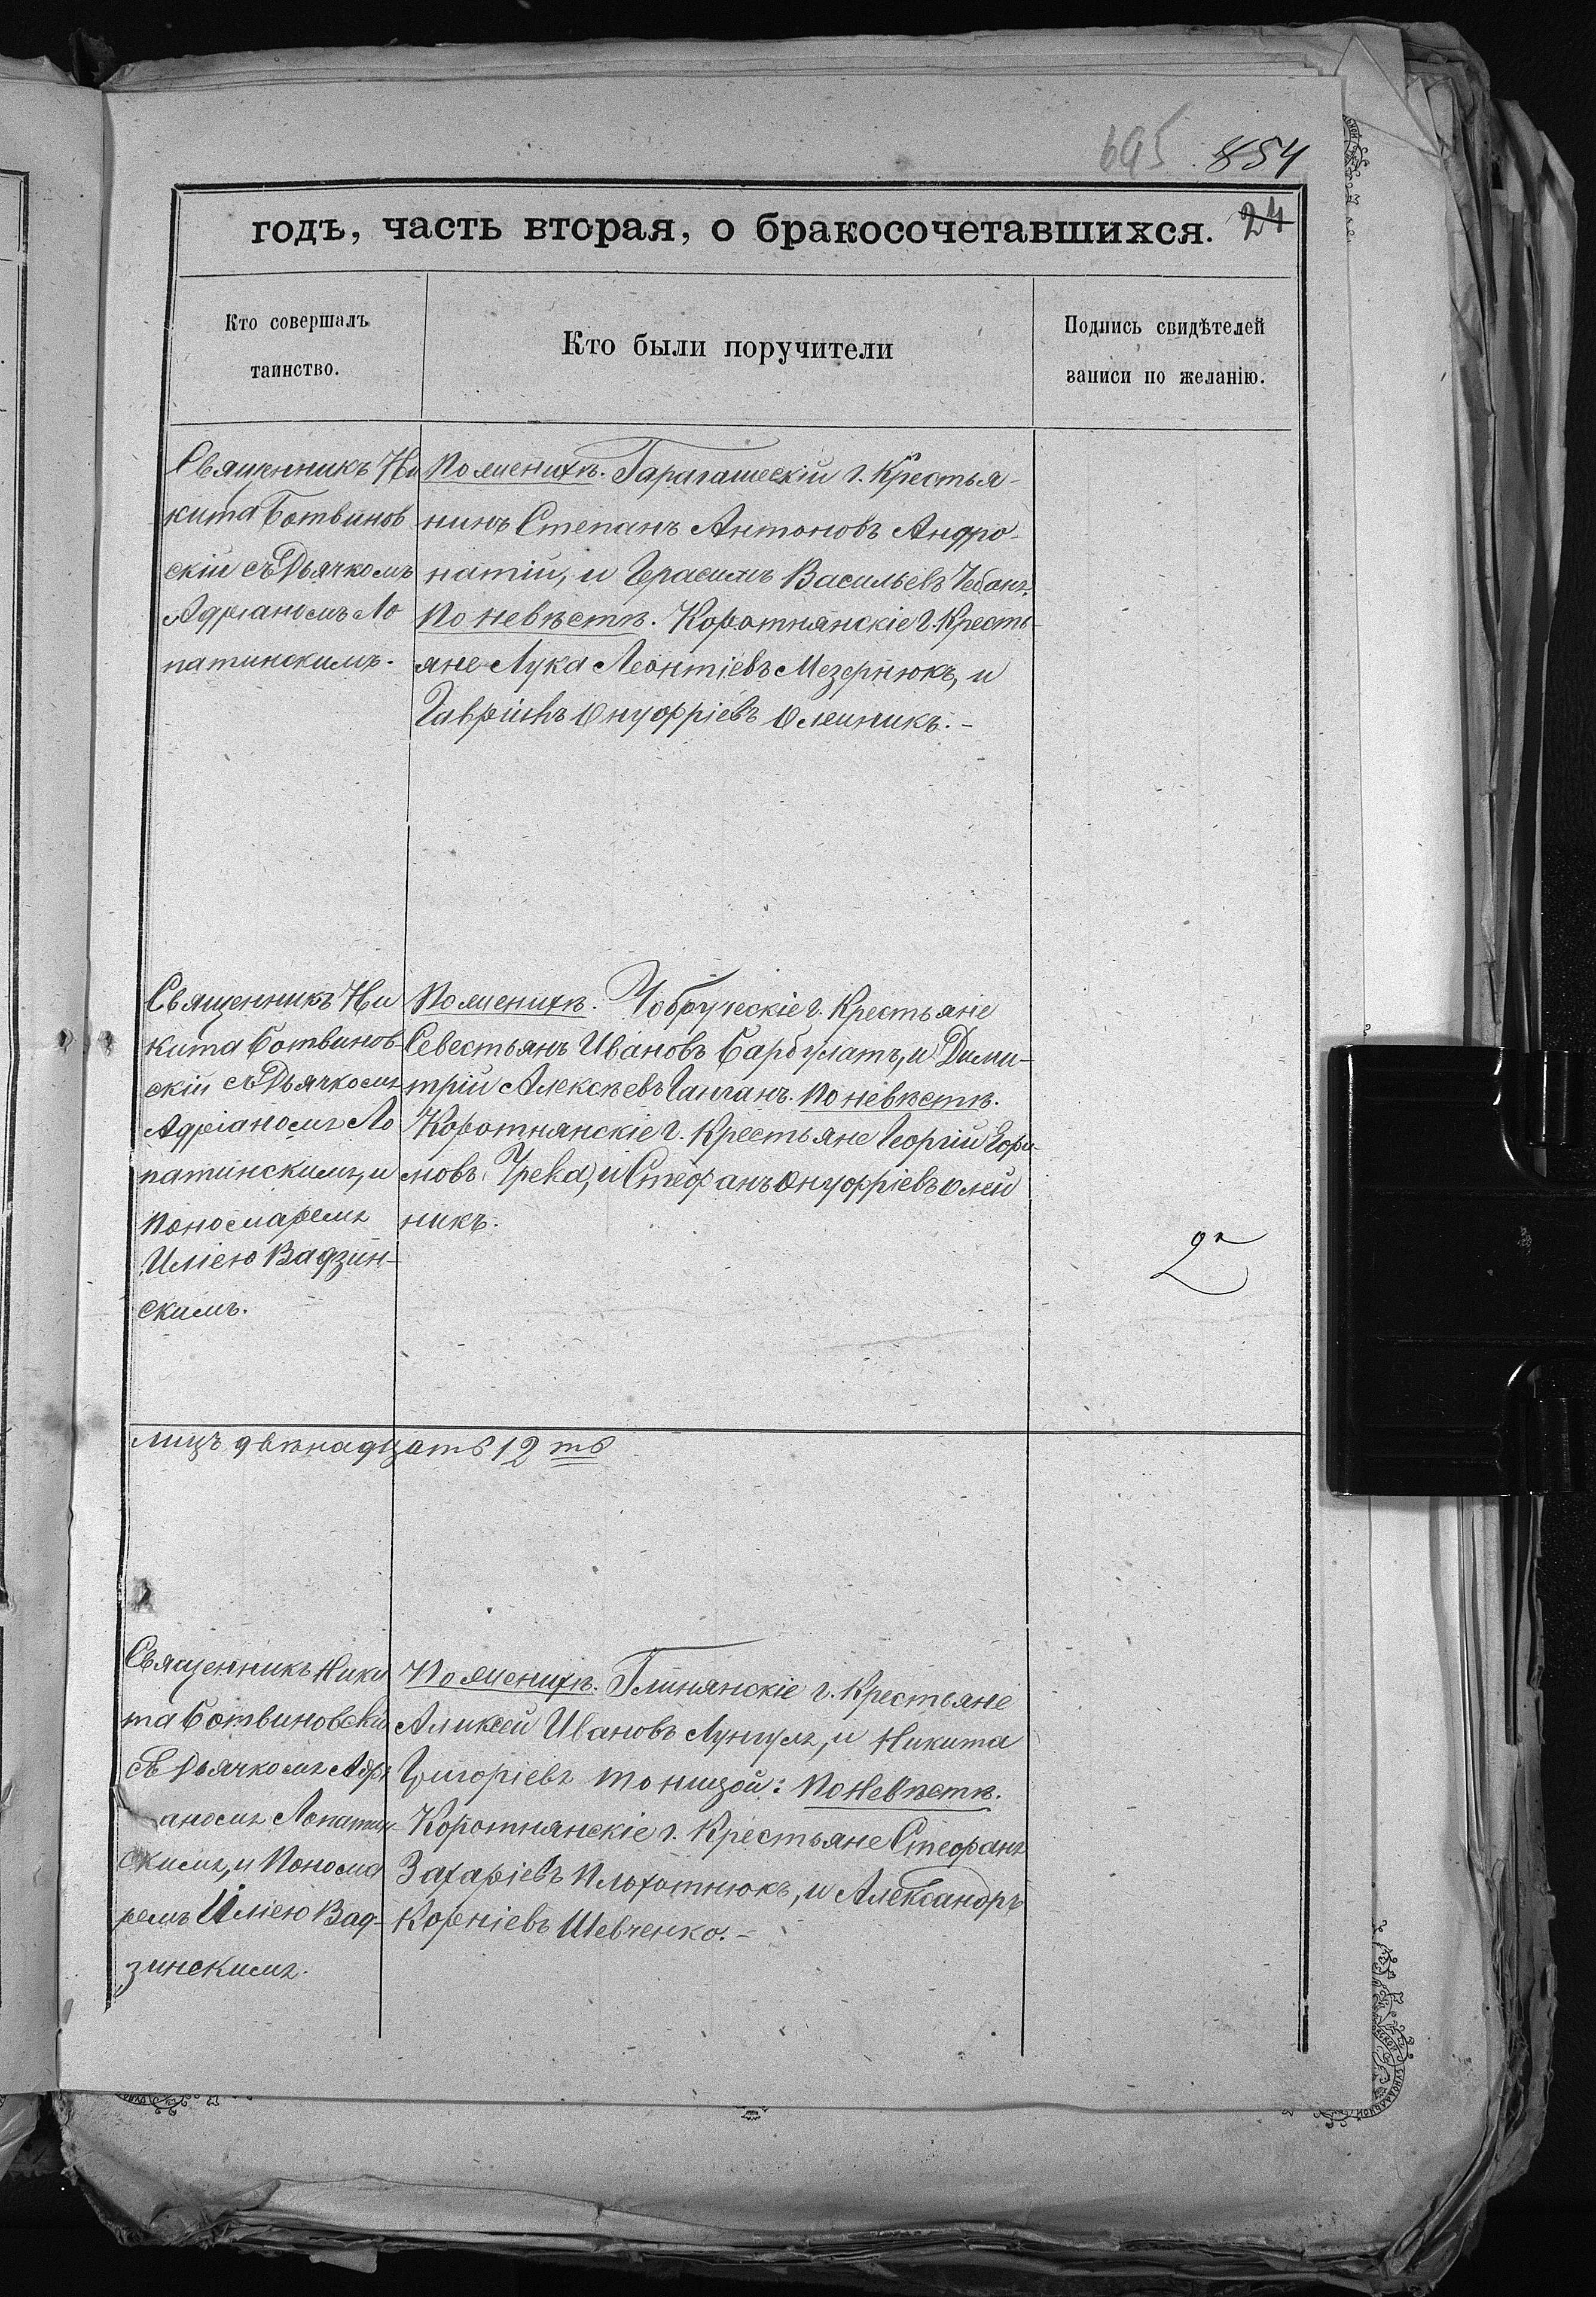 695 854
годъ, часть вторая, о бракосочетавшихся. 24
Кто совершалъ
таинство.
Кто были поручители
Подпись свидѣтелей
записи по желанію.
Священникъ Ни
кита Ботвинов
скій съ Дьячкомъ
Адріаномъ Ло
патинскимъ.
По женихѣ. Гарагашескіи г. Крестья-
нинъ Степанъ Антоновъ Андро-
натій, и Герасимъ Васильевъ Чебанъ.
По невѣстѣ. Коротнянскіе г. Кресть-
яне Лука Леонтіевъ Мезернюкъ, и
Гавріилъ Онуфріевъ Олеиникъ.-
Священникъ Ни
кита Ботвинов-
скій съ Дьячкомъ
Адріаномъ Ло
патинскимъ, и
Пономаремъ
Иліею Вадзин-
скимъ.
По женихѣ. Чобручскіе г. Крестьяне
Севестьянъ Ивановъ Барбулатъ, и Дими-
трій Алексѣевъ Ганганъ. По невѣстѣ.
Коротнянскіе г. Крестьяне Георгій
новъ Грека, и Стефанъ Онуфріевъ Олеи
никъ.
лицъ двѣнадцать 12 ть
Священникъ Ники
та Ботвиновскій
съ Дьячкомъ Адрі
аномъ Лопатин-
скимъ, и Понома
ремъ Иліею Вад-
зинскимъ.
По женихѣ. Глинянскіе г. Крестьяне
Аликсей Ивановъ Лунгулъ, и Никита
Григоріевъ Тонцой: По невѣстѣ.
Коротнянскіе г. Крестьяне Стефанъ
Захаріевъ Плохотнюкъ, и Александръ
Корніевъ Шевченко.-